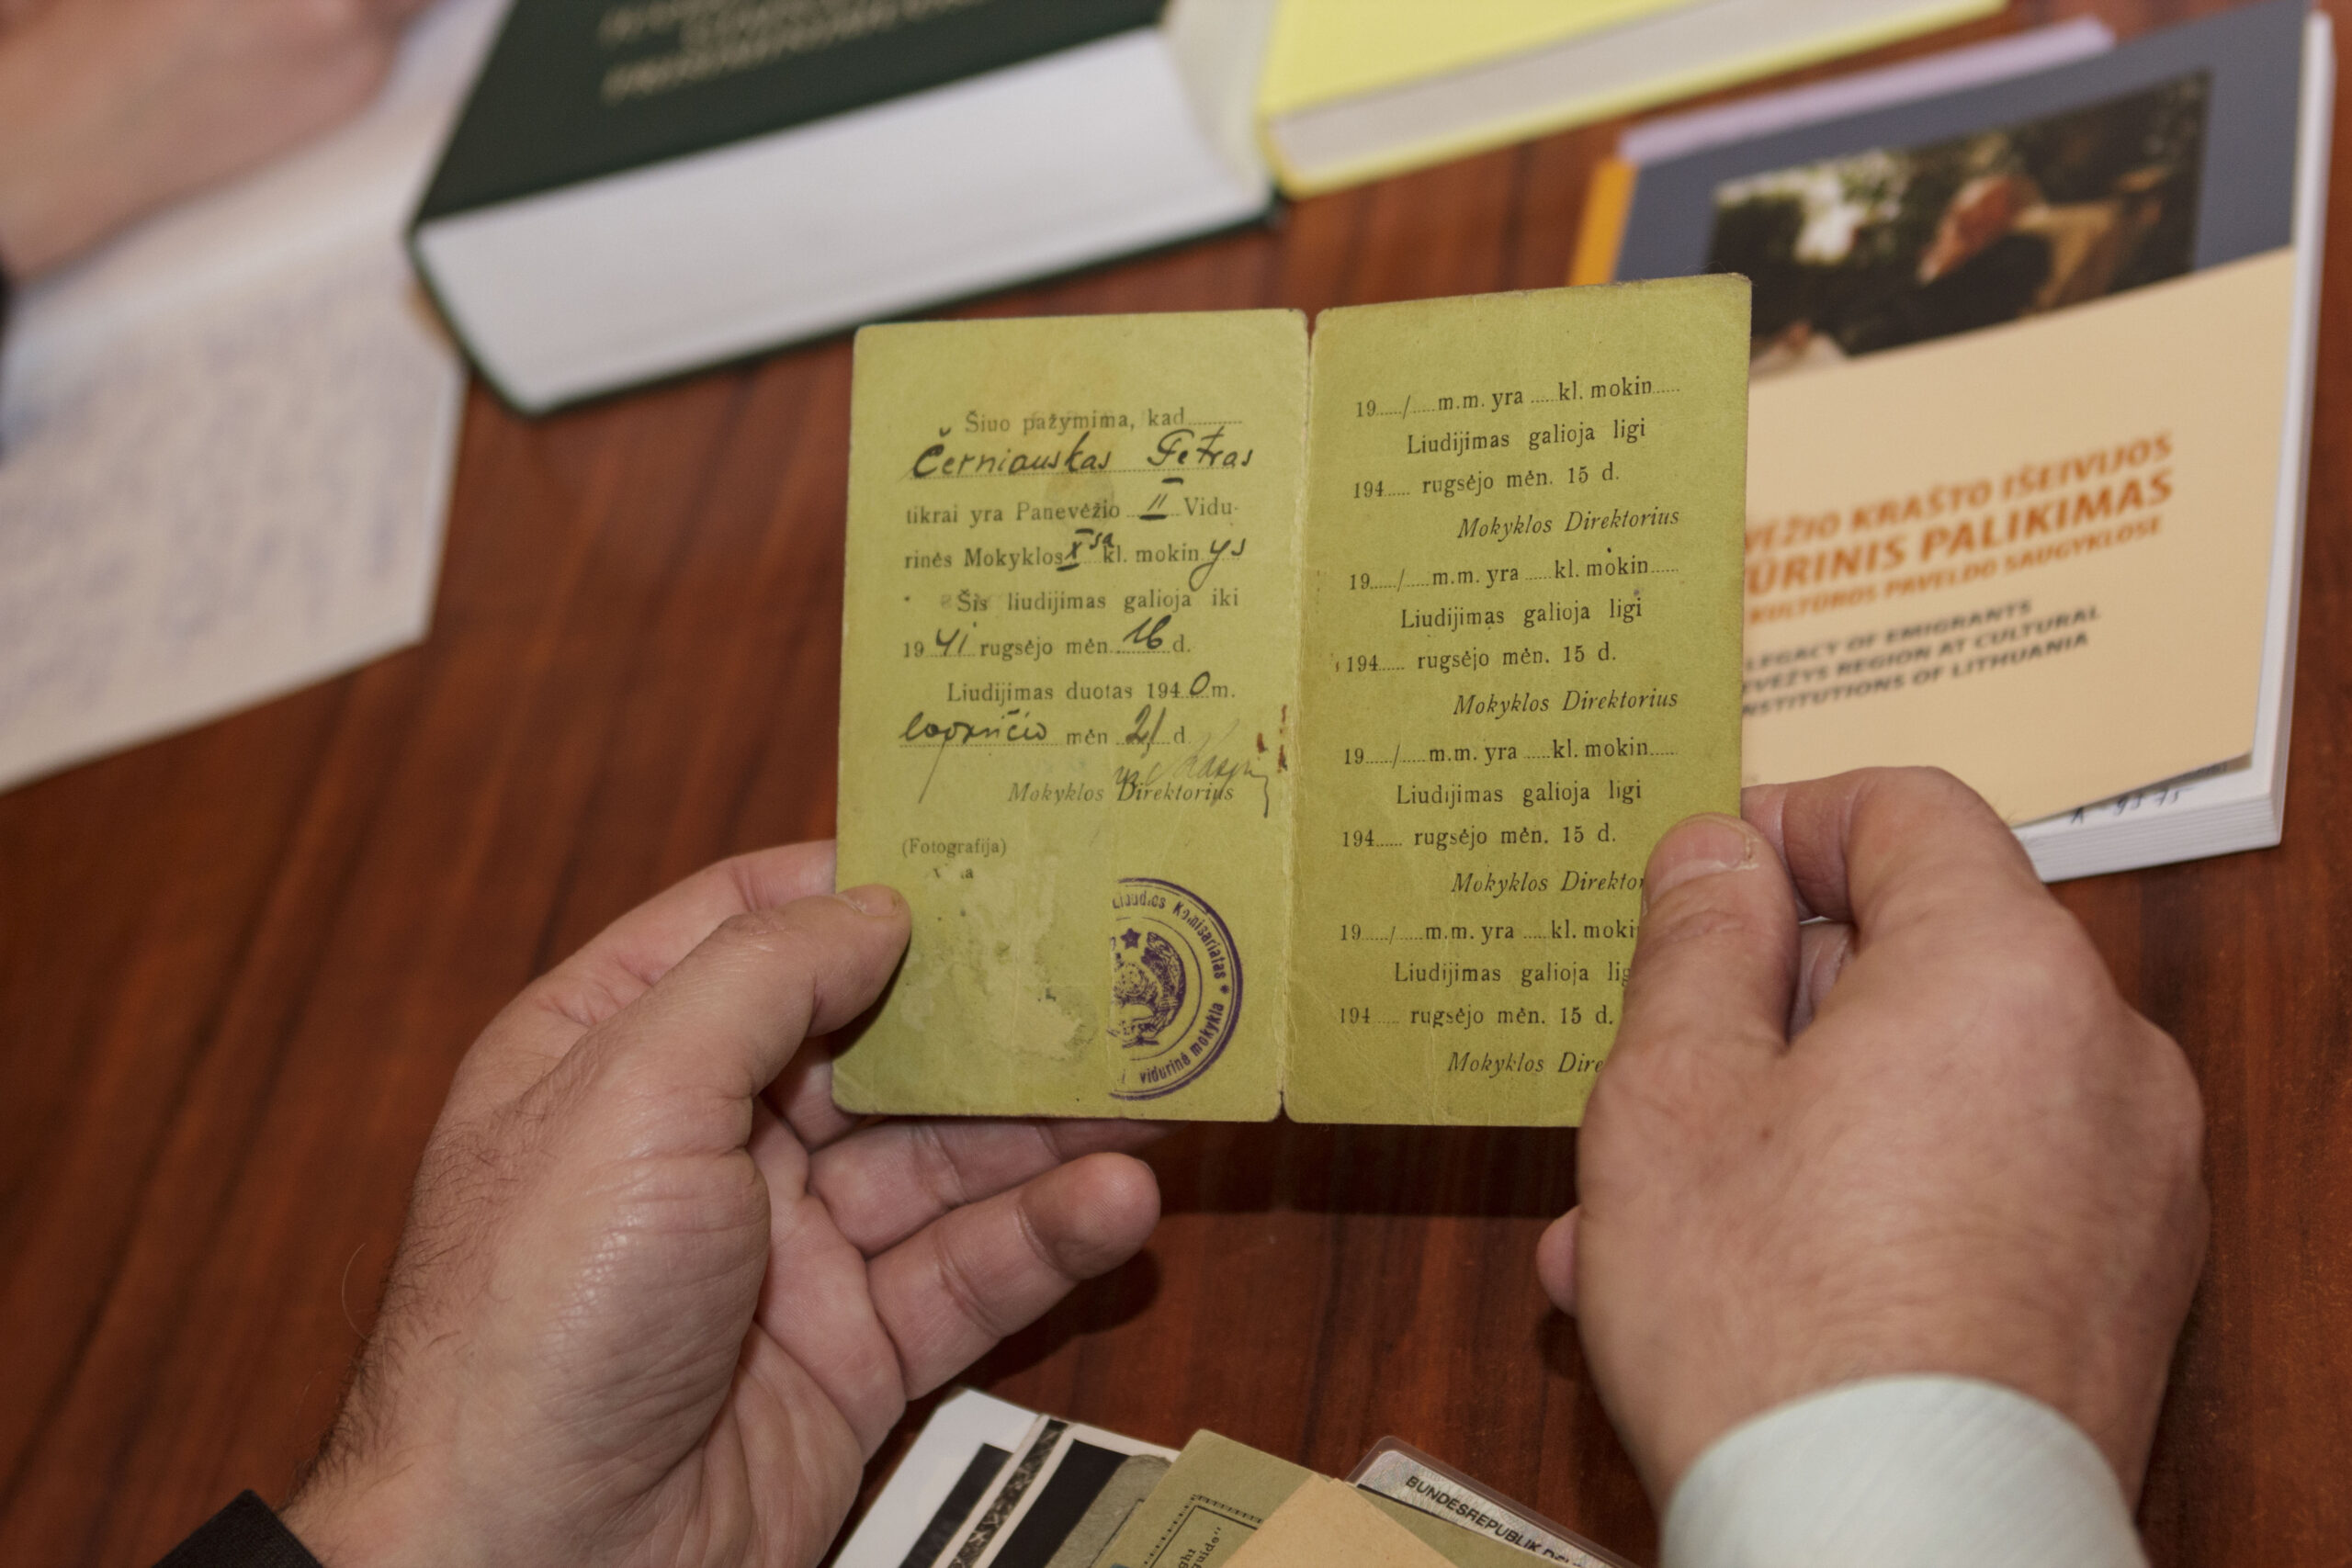 Šiuo pažymima, kad
Černiauskas Petras
tikrai yra Panevėžio II Vidu-
rinės Mokyklos X sa kl. mokin ys
Šis liudijimas galioja iki
19 41 rugsėjo mėn. 16 d.
Liudijimas duotas 194 0 m.
lapkričio mėn 21 d.
Mokyklos Direktorius
(Fotografija)
Liaudies Komisariatas *
vidurinė mokykla
19...../.....m.m. yra .....kl. mokin.....
Liudijimas galioja ligi
194..... rugsėjo mėn. 15 d.
Mokyklos Direktorius
19...../.....m.m. yra .....kl. mokin.....
Liudijimas galioja ligi
194..... rugsėjo mėn. 15 d.
Mokyklos Direktorius
19...../.....m.m. yra .....kl. mokin.....
Liudijimas galioja ligi
194..... rugsėjo mėn. 15 d.
Mokyklos Direktor
19...../.....m.m. yra .....kl. moki
Liudijimas galioja lig
194..... rugsėjo mėn. 15 d.
Mokyklos Dire
VĖŽIO KRAŠTO IŠEIVIJOS
ŪRINIS PALIKIMAS
KULTŪROS PAVELDO SAUGYKLOSE
LEGACY OF EMIGRANTS
EVĖŽYS REGION AT CULTURAL
NSTITUTIONS OF LITHUANIA
BUNDESREPUBLIK